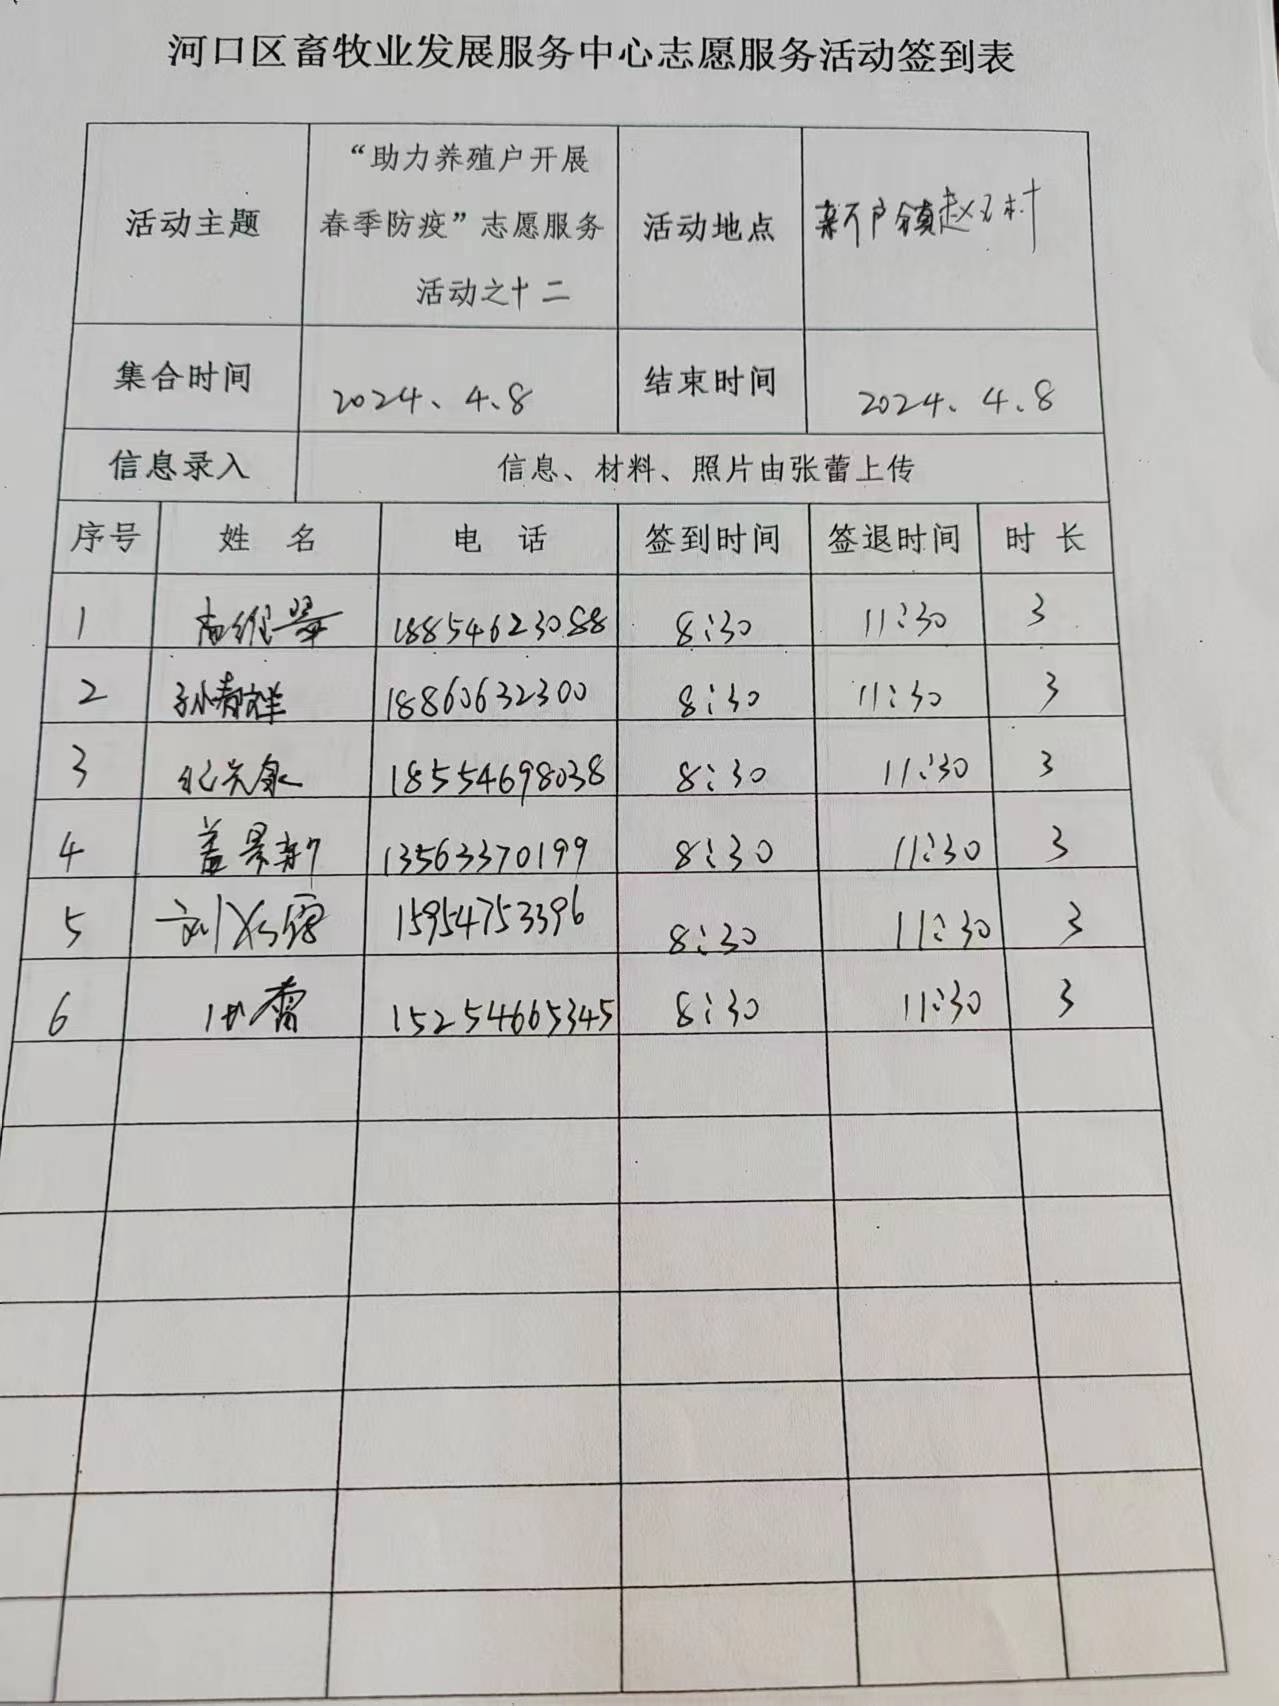 河口区畜牧业发展服务中心志愿服务活动签到表
活动主题
“助力养殖户开展
春季防疫”志愿服务
活动之十二
活动地点
新户镇赵 村
集合时间
2024、4、8
结束时间
2024、4、8
信息录入
信息、材料、照片由张蕾上传
序号 姓 名 电 话 签到时间 签退时间 时 长
1 18854623088 8:30 11:30 3
2 孙 祥 18860632300 8:30 11:30 3
3 纪 18554698038 8:30 11:30 3
4 盖景新 13563370199 8:30 11:30 3
5 刘 15954753396 8:30 11:30 3
6 15254665345 8:30 11:30 3